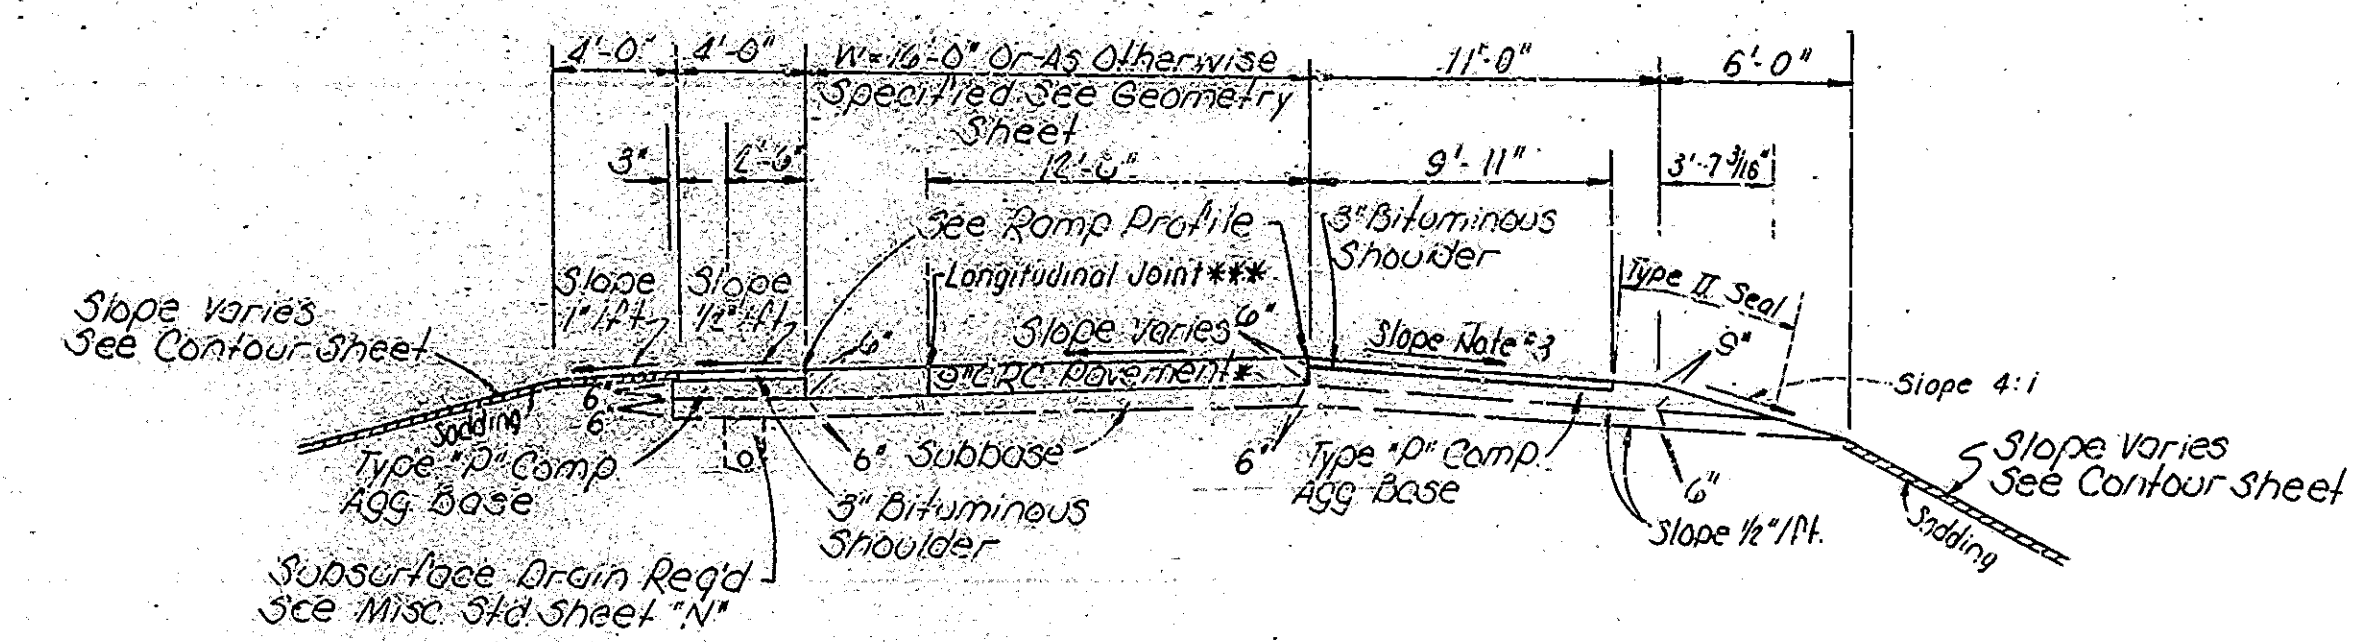 4'-0" 4'-0" W=16'-0" Or As Otherwise 11'-0" 6'-0"
Specified See Geometry
Sheet
3" 12'-0" 9'-11" 3'-7 3/16"
See Ramp Profile
3" Bituminous
Shoulder
Longitudinal Joint***
Type II Seal
Slope
1"/ft.
Slope
1/2"/ft.
Slope Varies
See Contour Sheet
6"
Slope Varies
6"
Slope Note #3
9"
9" CRC Pavement*
Slope 4:1
6"
6"
Sodding
Type "P" Comp.
Agg Base
6" Subbase
6"
Type "P" Comp.
Agg Base
6"
Slope 1/2"/ft.
Slope Varies
See Contour Sheet
Sodding
3" Bituminous
Shoulder
Subsurface Drain Req'd
See Misc. Std. Sheet "N"